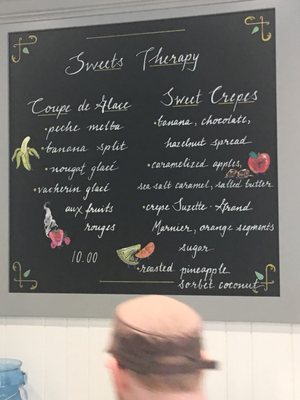 Sweets Therapy
Coupe de Glace
• peche melba
• banana split
• nougat glacé
• vacherin glacé
aux fruits
rouges
10.00
Sweet Crepes
• banana, chocolate,
hazelnut spread
• caramelized apples,
sea salt caramel, salted butter
• crepe Suzette - Grand
Marnier, orange segments
sugar
• roasted pineapple
sorbet coconut